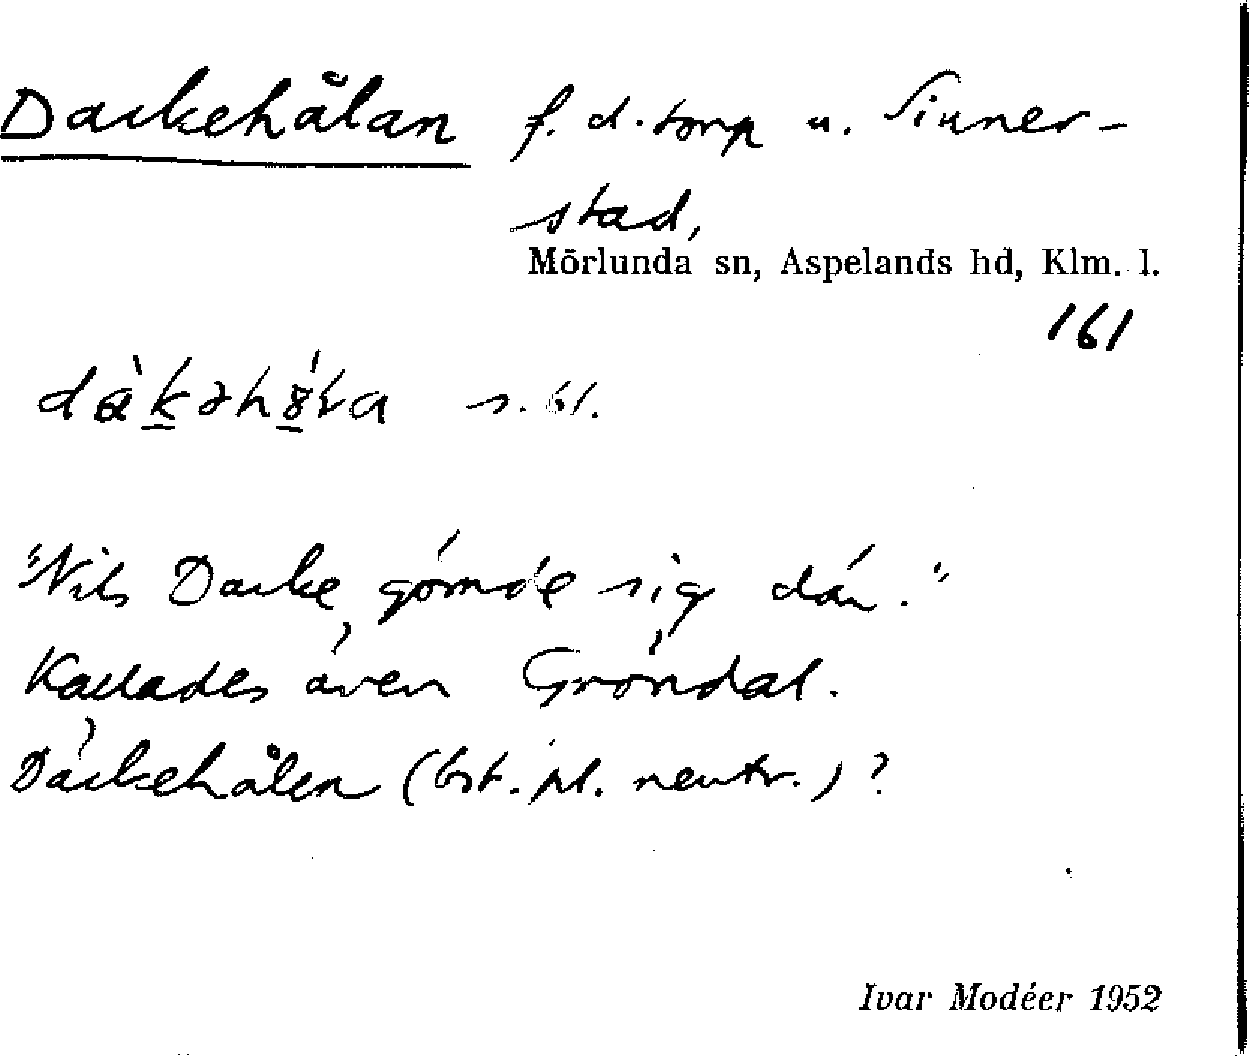 Dackehålan f. d. torp u. Sinner-
stad,
Mörlunda sn, Aspelands hd, Klm. l.
161
"Nils Dacke gömde sig där."
Kallades även Gröndal.
Dackehålen (bst. pl. neutr.)?
Ivar Modéer 1952